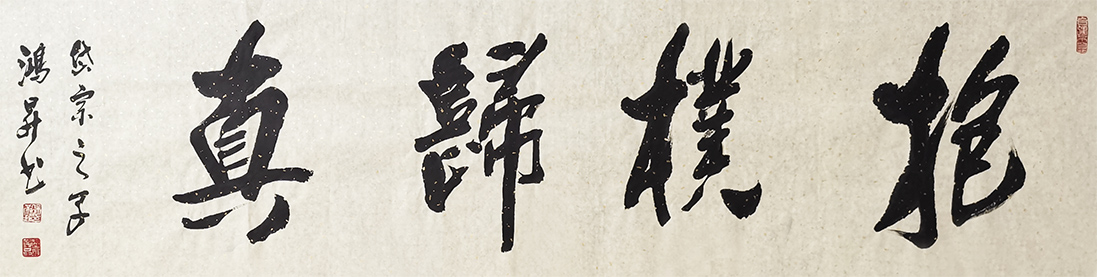 抱樸歸真
岱宗之子
鴻昇书